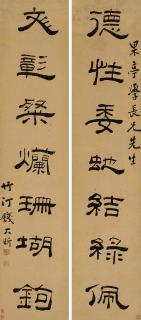 果亭學長兄先生
德性委蛇結綠佩
文彰粲爛珊瑚鉤
竹汀錢大昕